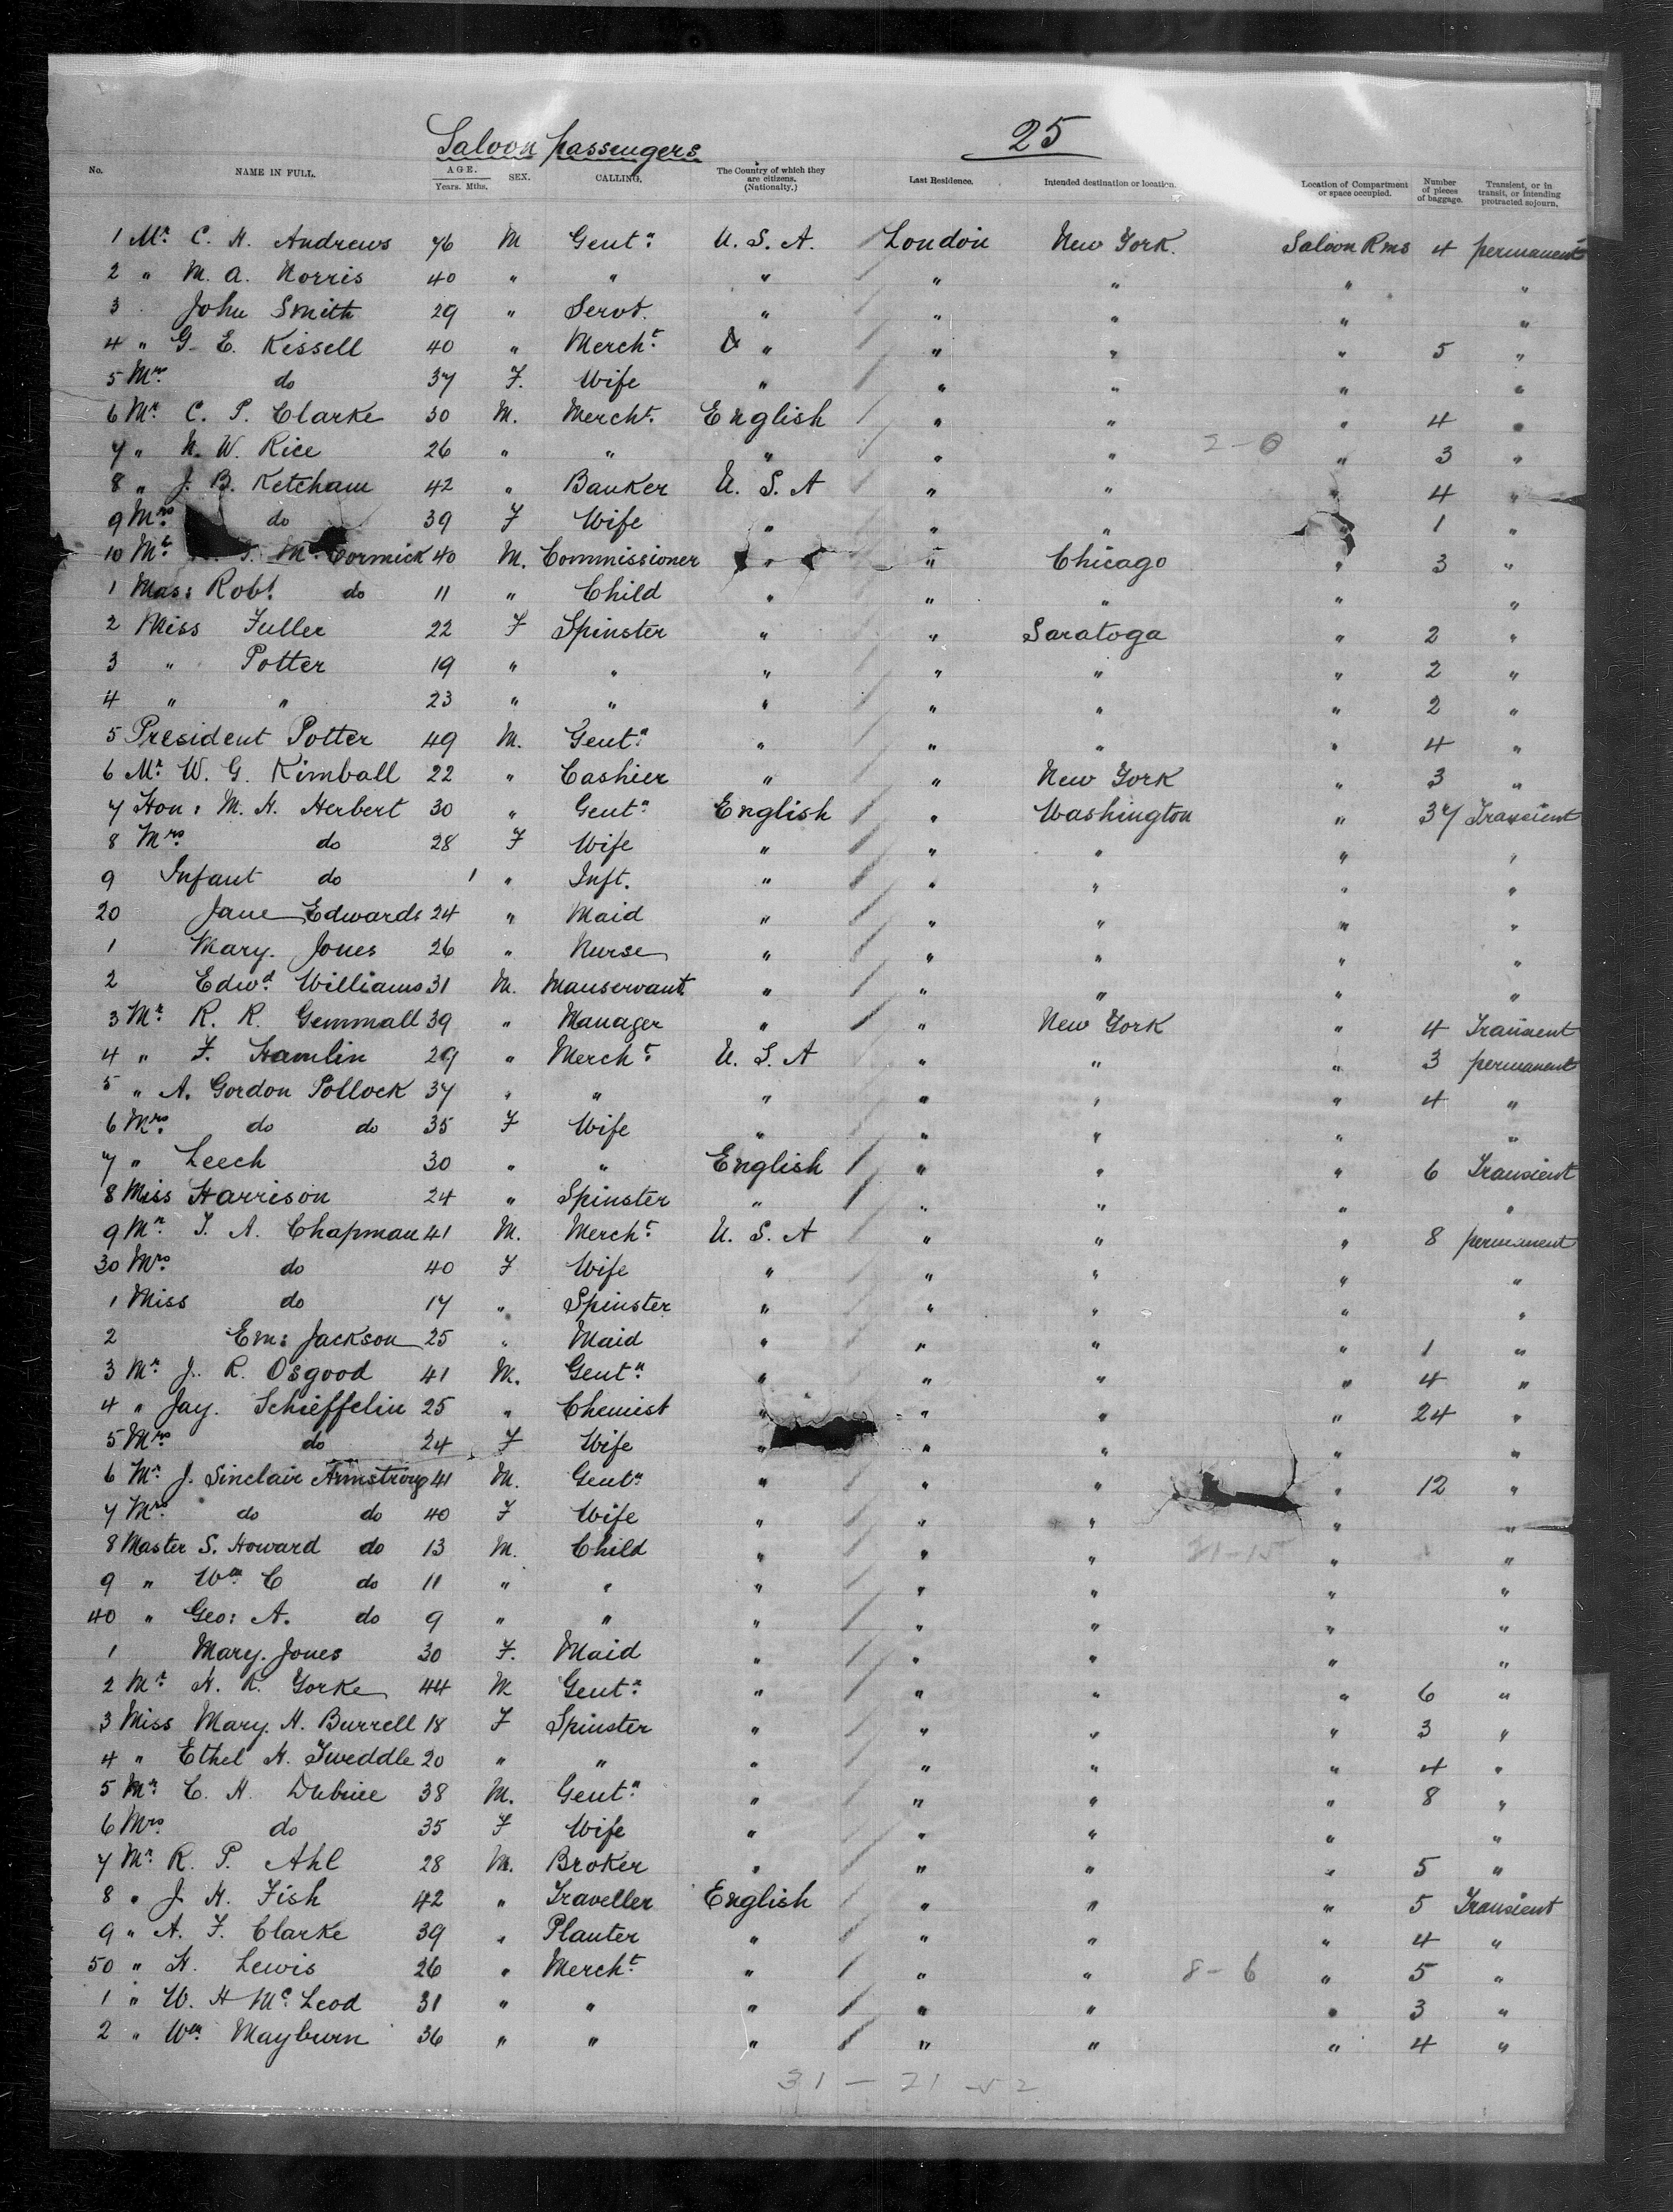 Saloon passengers 25
No. NAME IN FULL. AGE. Years. Mths. SEX. CALLING. The Country of which they are citizens. (Nationality.) Last Residence. Intended destination or location. Location of Compartment or space occupied. Number of pieces of baggage. Transient, or in transit, or intending protracted sojourn.
1 Mr. C. H. Andrews 76 M Gentn. U. S. A. London New York. Saloon Rms 4 permanent
2 " M. A. Norris 40 " " " " " " "
3 John Smith 29 " Servt. " " " " "
4 " G. E. Kissell 40 " Mercht. " " " " 5 "
5 Mrs. do 37 F. Wife " " " " "
6 Mr. C. P. Clarke 30 M. Mercht. English " " " 4 "
7 " N. W. Rice 26 " " " " " 2-0 " 3 "
8 " J. B. Ketcham 42 " Banker U. S. A " " " 4 "
9 Mrs. do 39 F Wife " " " " 1 "
10 Mr. McCormick 40 M. Commissioner " " Chicago " 3 "
1 Mas: Robt. do 11 " Child " " " " "
2 Miss Fuller 22 F Spinster " " Saratoga " 2 "
3 " Potter 19 " " " " " " 2 "
4 " " 23 " " " " " " 2 "
5 President Potter 49 M. Gentn. " " " " 4 "
6 Mr. W. G. Kimball 22 " Cashier " " New York " 3 "
7 Hon: M. H. Herbert 30 " Gentn. English " Washington " 37 Transient
8 Mrs. do 28 F Wife " " " " "
9 Infant do 1 " Inft. " " " " "
20 Jane Edwards 24 " Maid " " " " "
1 Mary. Jones 26 " Nurse " " " " "
2 Edwd. Williams 31 M. Manservant " " " " "
3 Mr. R. R. Gemmall 39 " Manager " " New York " 4 Transient
4 " F. Hamlin 29 " Mercht. U. S. A " " " 3 permanent
5 " A. Gordon Pollock 37 " " " " " " 4 "
6 Mrs. do do 35 F Wife " " " " "
7 " Leech 30 " " English " " " 6 Transient
8 Miss Harrison 24 " Spinster " " " " "
9 Mr. T. A. Chapman 41 M. Mercht. U. S. A " " " 8 permanent
30 Mrs. do 40 F Wife " " " " "
1 Miss do 17 " Spinster " " " " "
2 Em: Jackson 25 " Maid " " " " 1 "
3 Mr. J. R. Osgood 41 M. Gentn. " " " " 4 "
4 " Jay. Schieffelin 25 " Chemist " " " " 24 "
5 Mrs. do 24 F Wife " " " " "
6 Mr. J. Sinclair Armstrong 41 M. Gentn. " " " " 12 "
7 Mrs. do do 40 F Wife " " " " "
8 Master S. Howard do 13 M. Child " " " 21-15 " "
9 " Wm. C do 11 " " " " " " "
40 " Geo: A. do 9 " " " " " " "
1 Mary. Jones 30 F. Maid " " " " "
2 Mr. H. R. Yorke 44 M Gentn. " " " " 6 "
3 Miss Mary. H. Burrell 18 F Spinster " " " " 3 "
4 " Ethel H. Tweddle 20 " " " " " " 4 "
5 Mr. C. H. 38 M. Gentn. " " " " 8 "
6 Mrs. do 35 F Wife " " " " "
7 Mr. R. P. Ahl 28 M. Broker " " " " 5 "
8 " J. H. Fish 42 " Traveller English " " " 5 Transient
9 " A. F. Clarke 39 " Planter " " " " 4 "
50 " H. Lewis 26 " Mercht. " " " 8-6 " 5 "
1 " W. H McLeod 31 " " " " " " 3 "
2 " Wm. Mayburn 36 " " " " " " 4 "
31 - 21 - 52